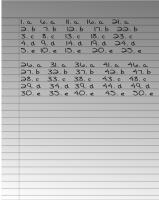 1. a 6. a 11. a 16. a 21. a
2. b 7. b 12. b 17. b 22. b
3. c 8. c 13. c 18. c 23. c
4. d 9. d 14. d 19. d 24. d
5. e 10. e 15. e 20. e 25. e
26. a 31. a 36. a 41. a 46. a
27. b 32. b 37. b 42. b 47. b
28. c 33. c 38. c 43. c 48. c
29. d 34. d 39. d 44. d 49. d
30. e 35. e 40. e 45. e 50. e